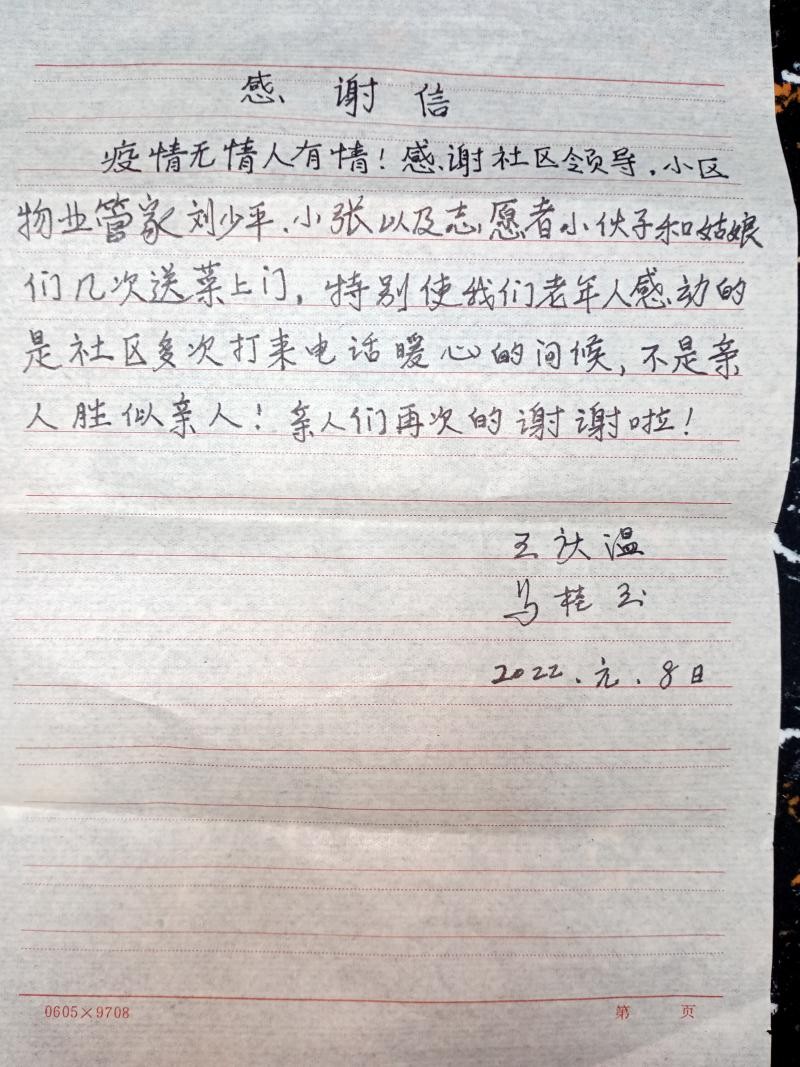 感谢信
疫情无情人有情！感谢社区领导，小区
物业管家刘少平、小张以及志愿者小伙子和姑娘
们几次送菜上门，特别使我们老年人感动的
是社区多次打来电话暖心的问候，不是亲
人胜似亲人！亲人们再次的谢谢啦！
王 温
马桂玉
2022.元.8日
0605×9708 第 页